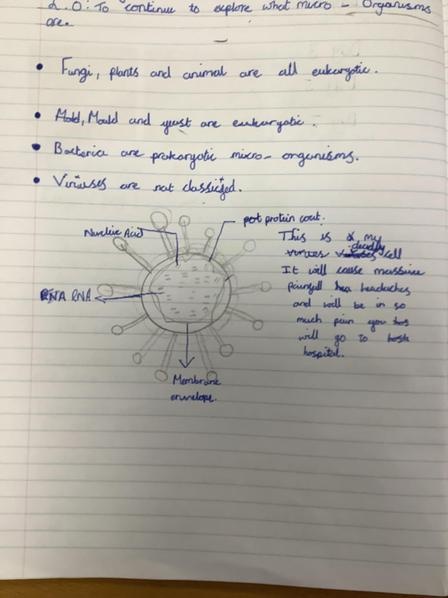 L.O: To continue to explore what micro - Organisms
are.
• Fungi, plants and animal are all eukaryotic.
• Mold, Mould and yeast are eukaryotic.
• Bacteria are prokaryotic micro-organisms.
• Viruses are not classified.
Nucleic Acid
protein coat.
RNA
Membrane
envelope.
This is my
deadly
cell
It will cause massive
headaches
and will be in so
much pain you
will go to
hospital.